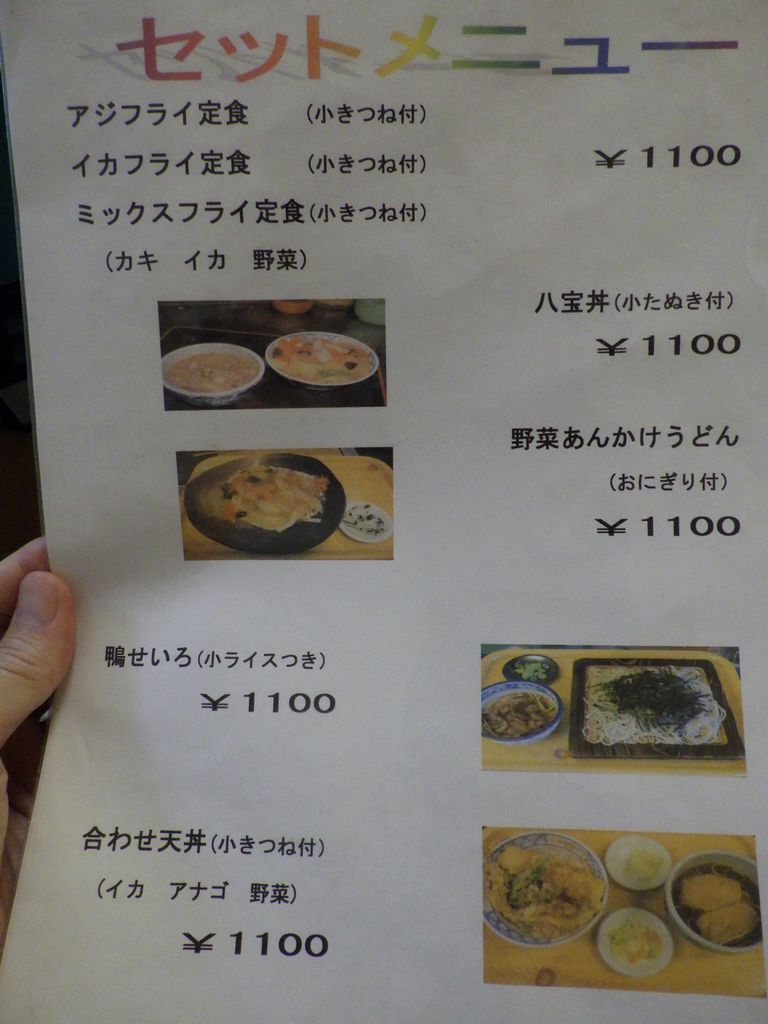 セットメニュー
アジフライ定食 (小きつね付)
イカフライ定食 (小きつね付)
¥1100
ミックスフライ定食(小きつね付)
(カキ イカ 野菜)
八宝丼(小たぬき付)
¥1100
野菜あんかけうどん
(おにぎり付)
¥1100
鴨せいろ(小ライスつき)
¥1100
合わせ天丼(小きつね付)
(イカ アナゴ 野菜)
¥1100